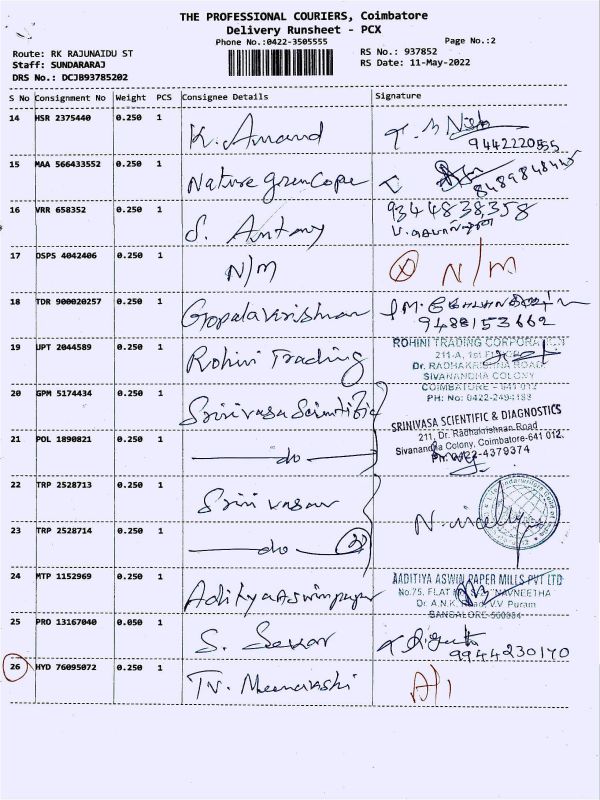 THE PROFESSIONAL COURIERS, Coimbatore
Delivery Runsheet - PCX
Phone No.:0422-3505555
Page No.:2
Route: RK RAJUNAIDU ST
RS No.: 937852
Staff: SUNDARARAJ
RS Date: 11-May-2022
DRS No.: DCJB93785202
S No Consignment No Weight PCS Consignee Details Signature
14 HSR 2375440 0.250 1 K. Anand
9442220855
15 MAA 566433552 0.250 1 Nature grencope
16 VRR 658352 0.250 1 S. Antony 9344838358
17 DSPS 4042406 0.250 1 N/M N/M
18 TDR 900020257 0.250 1 Gopalakrishnan
9488153662
19 UPT 2044589 0.250 1 Rohini Trading
ROHINI TRADING CORPORATION
211-A, 1st
Dr. RADHAKRISHNA ROAD
SIVANANDHA COLONY
COIMBATORE - 641 012
PH: No: 0422-
20 GPM 5174434 0.250 1 Srinivasa Scientific
SRINIVASA SCIENTIFIC & DIAGNOSTICS
211, Dr. Radhakrishnan Road
Sivanandha Colony, Coimbatore-641 012.
Ph: 0422-4379374
21 POL 1890821 0.250 1 do
22 TRP 2528713 0.250 1 Srinivasan
23 TRP 2528714 0.250 1 do
24 MTP 1152969 0.250 1 Adityaaswinpaper
AADITIYA ASWIN PAPER MILLS PVT LTD
No.75, FLAT NAVNEETHA
Dr. A.N.K. Road, V.V Puram
BANGALORE
25 PRO 13167040 0.050 1 S. Sekar
9944230140
26 HYD 76095072 0.250 1 Tv. Meenakshi